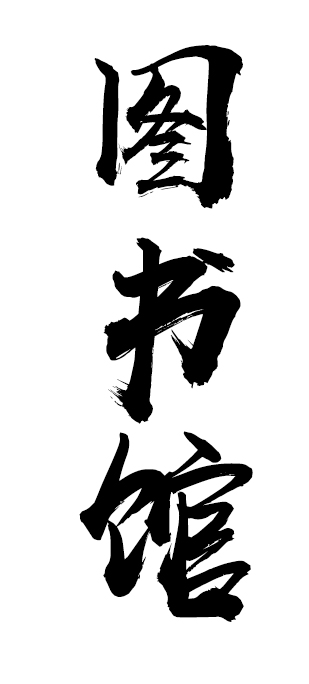 图书馆